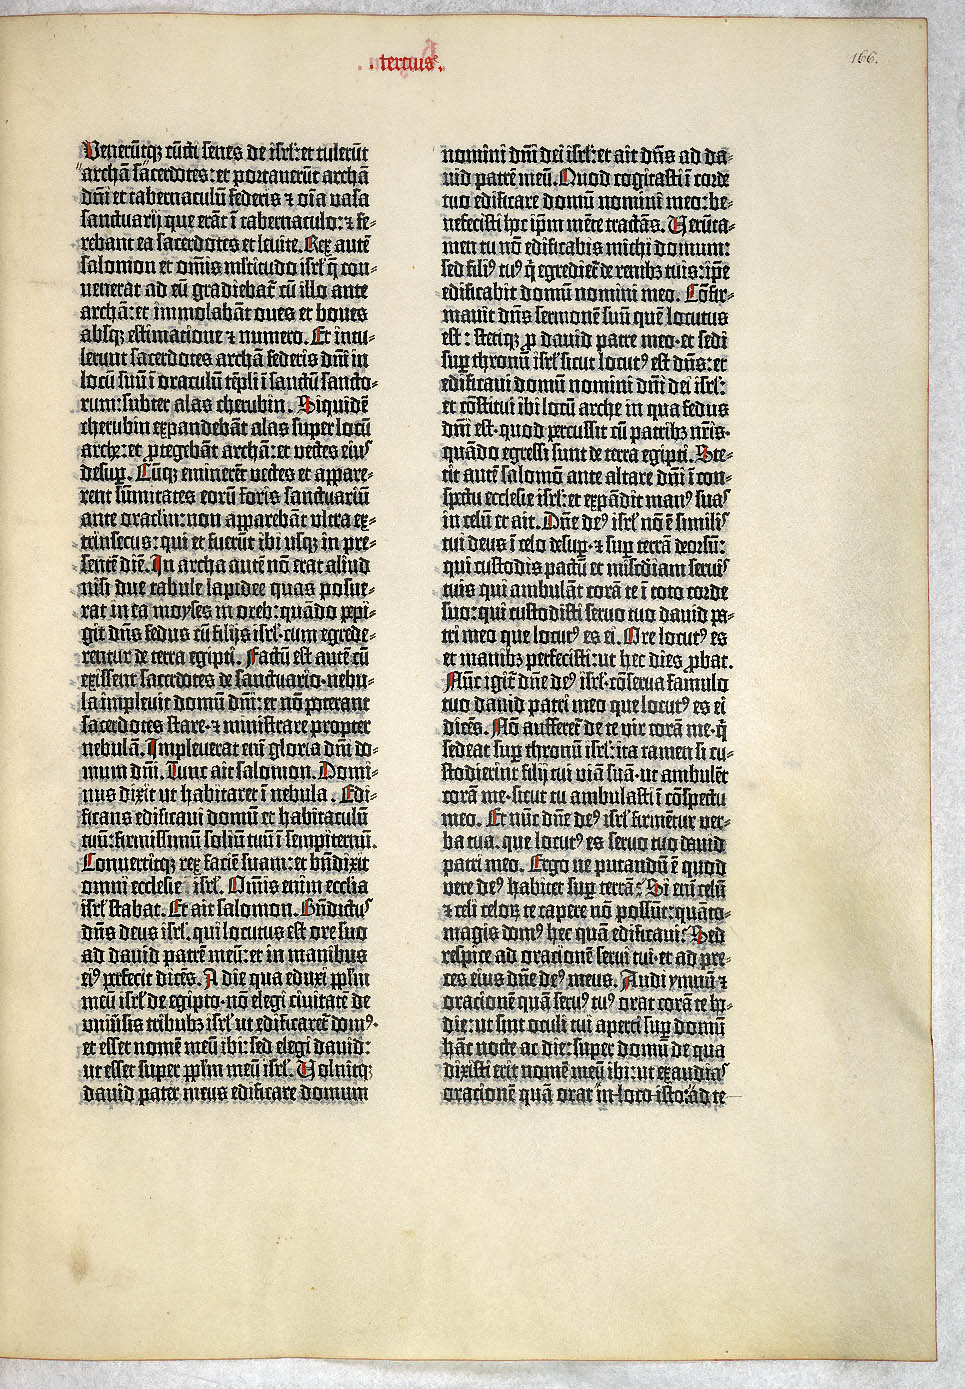 .tercius.
166.
Venerūtqʒ cūcti senes de isrl': et tulerūt
archā sacerdotes: et portauerūt archā
dn̄i et tabernaculū federis ⁊ oīa vasa
sanctuarij que erāt ī tabernaculo: ⁊ fe-
rebant ea sacerdotes et leuite. Rex autē
salomon et om̄is ml'titudo isrl' q̄ con-
uenerat ad eū gradiebat᷑ cū illo ante
archā: et immolabāt oues et boues
absqʒ estimatione ⁊ numero. Et intu-
lerunt sacerdotes archā federis dn̄i in
locū suū ī oraculū tēpli ī sanctū sancto-
rum: subter alas cherubin. Siquidē
cherubin expandebāt alas super locū
arche: et ꝓtegebāt archā: et vectes eiꝰ
desuꝑ. Cūqʒ eminerēt vectes et appare-
rent sūmitates eorū foris sanctuariū
ante oraclm: non apparebāt vltra ex-
trinsecus: qui et fuerūt ibi usqʒ in pre-
sentē diē. In archa autē nō erat aliud
nisi due tabule lapidee quas posue-
rat in ea moyses in oreb: quādo pepi-
git dn̄s fedus cū filijs isrl' cum egrede-
rentur de terra egipti. Factū est autē cū
exissent sacerdotes de sanctuario· nebu-
la impleuit domū dn̄i: et nō poterant
sacerdotes stare· ⁊ ministrare propter
nebulā. Impleuerat enī gloria dn̄i do-
mum dn̄i. Tunc ait salomon. Domi-
nus dixit ut habitaret ī nebula. Edi-
ficans edificaui domū et habitaculū
tuū: firmissimū soliū tuū ī sempiternū.
Conuertitqʒ rex faciē suam: et bn̄dixit
omni ecclesie isrl'. Om̄is enim ecclia
isrl' stabat. Et ait salomon. Bn̄dictꝰ
dn̄s deus isrl'. qui locutus est ore suo
ad dauid patrē meū: et in manibus
eiꝰ perfecit dicēs. A die qua eduxi pplm̄
meū isrl' de egipto· nō elegi ciuitatē de
vniūsis tribubʒ isrl' ut edificaret᷑ domꝰ·
et esset nomē meū ibi: sed elegi dauid:
ut esset super pplm̄ meū isrl'. Voluitqʒ
dauid pater meus edificare domum
nomini dn̄i dei isrl': et ait dn̄s ad da-
uid patrē meū. Quod cogitasti ī corde
tuo edificare domū nomini meo: be-
nefecisti hoc ip̄m mēte tractās. Verūta-
men tu nō edificabis michi domum:
sed filiꝰ tuꝰ q̇ egrediet᷑ de renibʒ tuis: ip̄e
edificabit domū nomini meo. Cōfir-
mauit dn̄s sermonē suū quē locutus
est: stetiqʒ ꝓ dauid patre meo· et sedi
suꝑ thronū isrl' sicut locutꝰ est dn̄s: et
edificaui domū nomini dn̄i dei isrl':
et cōstitui ibi locū arche in qua fedus
dn̄i est· quod percussit cū patribʒ nr̄is·
quādo egressi sunt de terra egipti. Ste-
tit autē salomō ante altare dn̄i ī con-
spectu ecclesie isrl': et expādit manꝰ suas
in celū et ait. Dn̄e deꝰ isrl' nō ē similis
tui deus ī celo desuꝑ· ⁊ suꝑ terrā deorsū:
qui custodis pactū et mīscdiam seruis
tuis qui ambulāt corā te ī toto corde
suo: qui custodisti seruo tuo dauid pa-
tri meo que locutꝰ es ei. Ore locutꝰ es
et manibʒ perfecisti: ut hec dies ꝓbat.
Nūc igit᷑ dn̄e deꝰ isrl' cōserua famulo
tuo dauid patri meo que locutꝰ es ei
dicēs. Nō aufferet᷑ de te vir corā me· q̇
sedeat suꝑ thronū isrl': ita tamen si cu-
stodierint filij tui viā suā· ut ambulēt
corā me· sicut tu ambulasti ī cōspectu
meo. Et nūc dn̄e deꝰ isrl' firmētur ver-
ba tua· que locutꝰ es seruo tuo dauid
patri meo. Ergo ne putandū ē quod
vere deꝰ habitet suꝑ terrā? Si enī celū
⁊ celi celoꝝ te capere nō possūt: quāto-
magis domꝰ hec quā edificaui? Sed
respice ad orationē serui tui· et ad pre-
ces eius dn̄e deꝰ meus. Audi ymnū ⁊
orationē quā seruꝰ tuꝰ orat corā te ho-
die: ut sint oculi tui aperti suꝑ domū
hāc nocte ac die: super domū de qua
dixisti erit nomē meū ibi: ut exaudias
orationē quā orat in loco isto: ad te